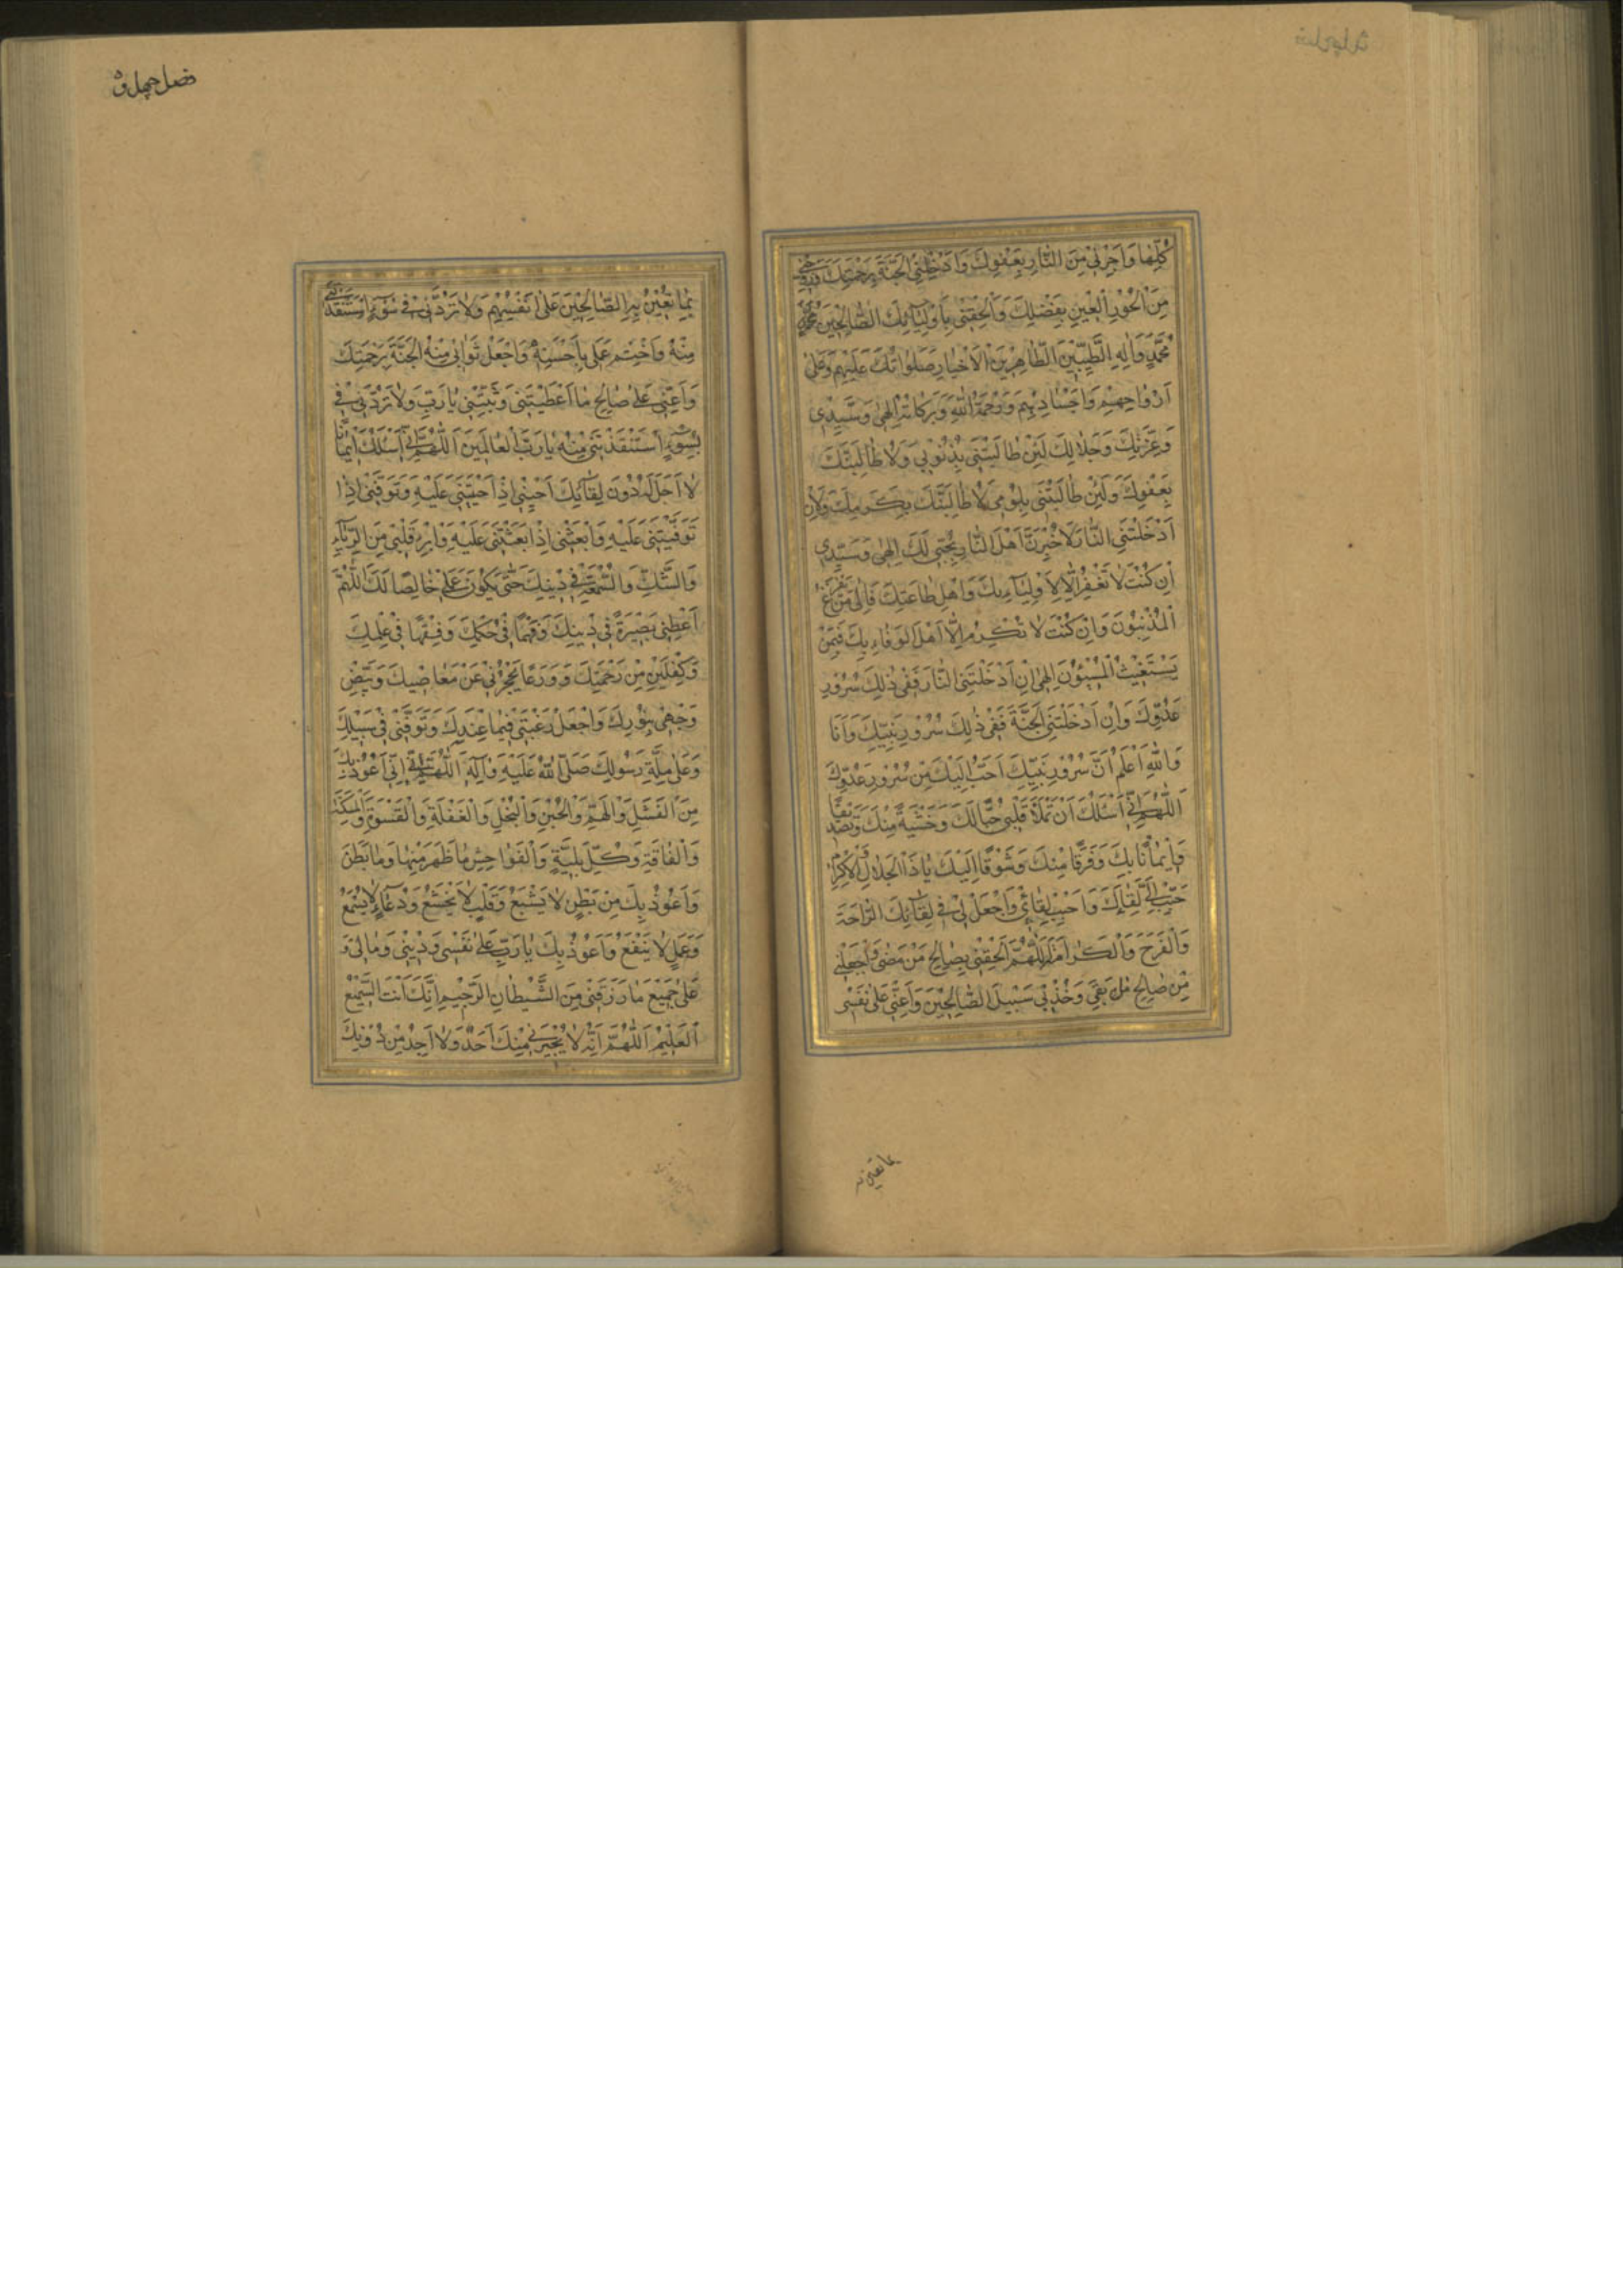 كُلِّهَا وَاَجِرْنِي مِنَ النَّارِ بِعَفْوِكَ وَاَدْخِلْنِي الْجَنَّةَ بِرَحْمَتِكَ وَزَوِّجْنِي
مِنَ الْحُورِ الْعِينِ بِفَضْلِكَ وَاَلْحِقْنِي بِاَوْلِيَائِكَ الصَّالِحِينَ مُحَمَّدٍ
مُحَمَّدٍ وَالِهِ الطَّيِّبِينَ الطَّاهِرِينَ الْاَخْيَارِ صَلَوَاتُكَ عَلَيْهِمْ وَعَلَى
اَرْوَاحِهِمْ وَاَجْسَادِهِمْ وَرَحْمَةُ اللهِ وَبَرَكَاتُهُ اِلٰهِي وَسَيِّدِي
وَعِزَّتِكَ وَجَلَالِكَ لَئِنْ طَالَبْتَنِي بِذُنُوبِي وَلَاُطَالِبَنَّكَ
بِعَفْوِكَ وَلَئِنْ طَالَبْتَنِي بِلُؤْمِي لَاُطَالِبَنَّكَ بِكَرَمِكَ وَلَئِنْ
اَدْخَلْتَنِي النَّارَ لَاُخْبِرَنَّ اَهْلَ النَّارِ بِحُبِّي لَكَ اِلٰهِي وَسَيِّدِي
اِنْ كُنْتَ لَا تَغْفِرُ اِلَّا لِاَوْلِيَآءِكَ وَاَهْلِ طَاعَتِكَ فَاِلَى مَنْ يَفْزَعُ
الْمُذْنِبُونَ وَاِنْ كُنْتَ لَا تُكْرِمُ اِلَّا اَهْلَ الْوَفَاءِ بِكَ فَبِمَنْ
يَسْتَغِيثُ الْمُسِيْئُونَ اِلٰهِي اِنْ اَدْخَلْتَنِي النَّارَ فَفِي ذٰلِكَ سُرُورُ
عَدُوِّكَ وَاِنْ اَدْخَلْتَنِي الْجَنَّةَ فَفِي ذٰلِكَ سُرُورُ نَبِيِّكَ وَاَنَا
وَاللهِ اَعْلَمُ اَنَّ سُرُورَ نَبِيِّكَ اَحَبُّ اِلَيْكَ مِنْ سُرُورِ عَدُوِّكَ
اَللّٰهُمَّ اِنِّي اَسْئَلُكَ اَنْ تَمْلَاَ قَلْبِي حُبًّا لَكَ وَخَشْيَةً مِنْكَ وَتَصْدِيقًا
وَاِيمَانًا بِكَ وَفَرَقًا مِنْكَ وَشَوْقًا اِلَيْكَ يَا ذَا الْجَلَالِ وَالْاِكْرَامِ
حَبِّبْ اِلَيَّ لِقَاءَكَ وَاَحْبِبْ لِقَائِي وَاجْعَلْ لِي فِي لِقَآئِكَ الرَّاحَةَ
وَالْفَرَحَ وَالْكَرَامَةَ اَللّٰهُمَّ اَلْحِقْنِي بِصَالِحِ مَنْ مَضَى وَاجْعَلْنِي
مِنْ صَالِحِ مَنْ بَقِيَ وَخُذْ بِي سَبِيلَ الصَّالِحِينَ وَاَعِنِّي عَلَى نَفْسِي
فصل چهل و
بِمَا تُعِينُ بِهِ الصَّالِحِينَ عَلَى اَنْفُسِهِمْ وَلَا تَرُدَّنِي فِي سُوءٍ اسْتَنْقَذْتَنِي
مِنْهُ وَاخْتِمْ عَمَلِي بِاَحْسَنِهِ وَاجْعَلْ ثَوَابِي مِنْهُ الْجَنَّةَ بِرَحْمَتِكَ
وَاَعِنِّي عَلَى صَالِحِ مَا اَعْطَيْتَنِي وَثَبِّتْنِي يَا رَبِّ وَلَا تَرُدَّنِي فِي
سُوءٍ اسْتَنْقَذْتَنِي مِنْهُ يَا رَبَّ الْعَالَمِينَ اَللّٰهُمَّ اِنِّي اَسْئَلُكَ اِيمَانًا
لَا اَجَلَ لَهُ دُونَ لِقَآئِكَ اَحْيِنِي اِذَا اَحْيَيْتَنِي عَلَيْهِ وَتَوَفَّنِي اِذَا
تَوَفَّيْتَنِي عَلَيْهِ وَابْعَثْنِي اِذَا بَعَثْتَنِي عَلَيْهِ وَاَبْرِءْ قَلْبِي مِنَ الرِّيَآءِ
وَالشَّكِّ وَالسُّمْعَةِ فِي دِينِكَ حَتَّى يَكُونَ عَمَلِي خَالِصًا لَكَ اَللّٰهُمَّ
اَعْطِنِي بَصِيرَةً فِي دِينِكَ وَفَهْمًا فِي حُكْمِكَ وَفِقْهًا فِي عِلْمِكَ
وَكِفْلَيْنِ مِنْ رَحْمَتِكَ وَوَرَعًا يَحْجُزُنِي عَنْ مَعَاصِيكَ وَبَيِّضْ
وَجْهِي بِنُورِكَ وَاجْعَلْ رَغْبَتِي فِيمَا عِنْدَكَ وَتَوَفَّنِي فِي سَبِيلِكَ
وَعَلَى مِلَّةِ رَسُولِكَ صَلَّى اللهُ عَلَيْهِ وَآلِهِ اَللّٰهُمَّ اِنِّي اَعُوذُ بِكَ
مِنَ الْفَشَلِ وَالْهَمِّ وَالْجُبْنِ وَالْبُخْلِ وَالْغَفْلَةِ وَالْقَسْوَةِ وَالْمَسْكَنَةِ
وَالْفَاقَةِ وَكُلِّ بَلِيَّةٍ وَالْفَوَاحِشِ مَا ظَهَرَ مِنْهَا وَمَا بَطَنَ
وَاَعُوذُ بِكَ مِنْ بَطْنٍ لَا يَشْبَعُ وَقَلْبٍ لَا يَخْشَعُ وَدُعَآءٍ لَا يُسْمَعُ
وَعَمَلٍ لَا يَنْفَعُ وَاَعُوذُ بِكَ يَا رَبِّ عَلَى نَفْسِي وَدِينِي وَمَالِي وَ
عَلَى جَمِيعِ مَا رَزَقْتَنِي مِنَ الشَّيْطَانِ الرَّجِيمِ اِنَّكَ اَنْتَ السَّمِيعُ
الْعَلِيمُ اَللّٰهُمَّ اِنَّهُ لَا يُجِيرُنِي مِنْكَ اَحَدٌ وَلَا اَجِدُ مِنْ دُونِكَ